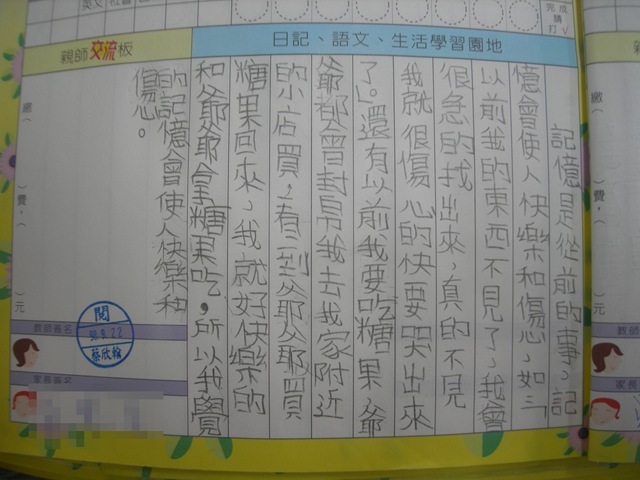 英文
社會
完成
請
打√
親師交流板
日記、語文、生活學習園地
記憶是從前的事，記
憶會使人快樂和傷心，如「
以前我的東西不見了，我會
很急的找出來，真的不見
我就很傷心的快要哭出來
了。」還有以前我要吃糖果，爺
爺都會幫我去我家附近
的小店買，看到爺爺買
糖果回來，我就好快樂的
和爺爺拿糖果吃，所以我覺
的記憶會使人快樂和
傷心。
繳（
）費，（
）元
教師簽名
閱
98.9.22
蔡欣翰
家長簽名
親
繳（
）費，（
）元
教師
家長